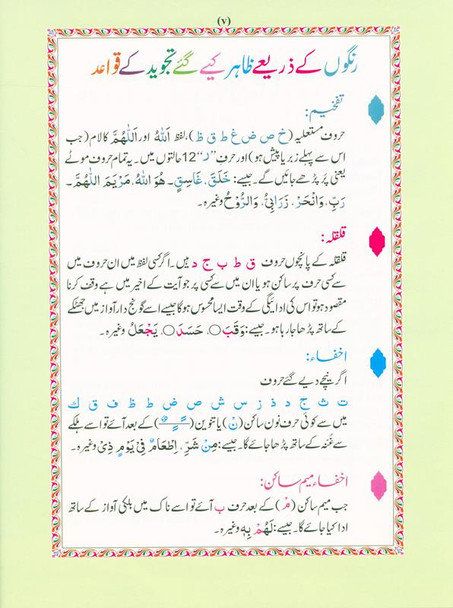 (۷)
رنگوں کے ذریعے ظاہر کیے گئے تجوید کے قواعد
تفخیم:
حروف مستعلیہ (خ ص ض غ ط ق ظ)، لفظ اَللّٰهُ اور اَللّٰهُمَّ کا لام (جب
اس سے پہلے زبر یا پیش ہو) اور حرفِ ”ر“ 12 حالتوں میں۔ یہ تمام حروف موٹے
یعنی پُر پڑھے جائیں گے۔ جیسے: خَلَقَ، غَاسِقٍ۔ هُوَ اللّٰهُ، مَرْيَمَ اللّٰهُمَّ۔
رَبِّ، وَانْحَرْ، زَرَابِيُّ، وَالرُّوْحُ وغیرہ۔
قلقلہ:
قلقلہ کے پانچوں حروف ق ط ب ج د ہیں۔ اگر کسی لفظ میں ان حروف میں
سے کسی حرف پر سکون ہو یا ان میں سے کسی پر جو آیت کے اخیر میں ہے وقف کرنا
مقصود ہو تو اس کی ادائیگی کے وقت ایسا محسوس ہوگا جیسے اسے گونج دار آواز میں جھٹکے
کے ساتھ پڑھا جا رہا ہو۔ جیسے: وَقَبَ○، حَسَدَ○، يَجْعَلُ وغیرہ۔
اخفاء:
اگر نیچے دیے گئے حروف
ت ث ج د ذ ز س ش ص ض ط ظ ف ق ك
میں سے کوئی حرف نون ساکن (نْ) یا تنوین (ــًــٍــٌ) کے بعد آئے تو اسے ہلکے
سے غنہ کے ساتھ پڑھا جائے گا۔ جیسے: مِنْ شَرِّ، اِطْعَامٌ فِيْ يَوْمٍ ذِيْ وغیرہ۔
اخفاء میم ساکن:
جب میم ساکن (مْ) کے بعد حرف ب آئے تو اسے ناک میں ہلکی آواز کے ساتھ
ادا کیا جائے گا۔ جیسے: لَهُمْ بِهٖ وغیرہ۔